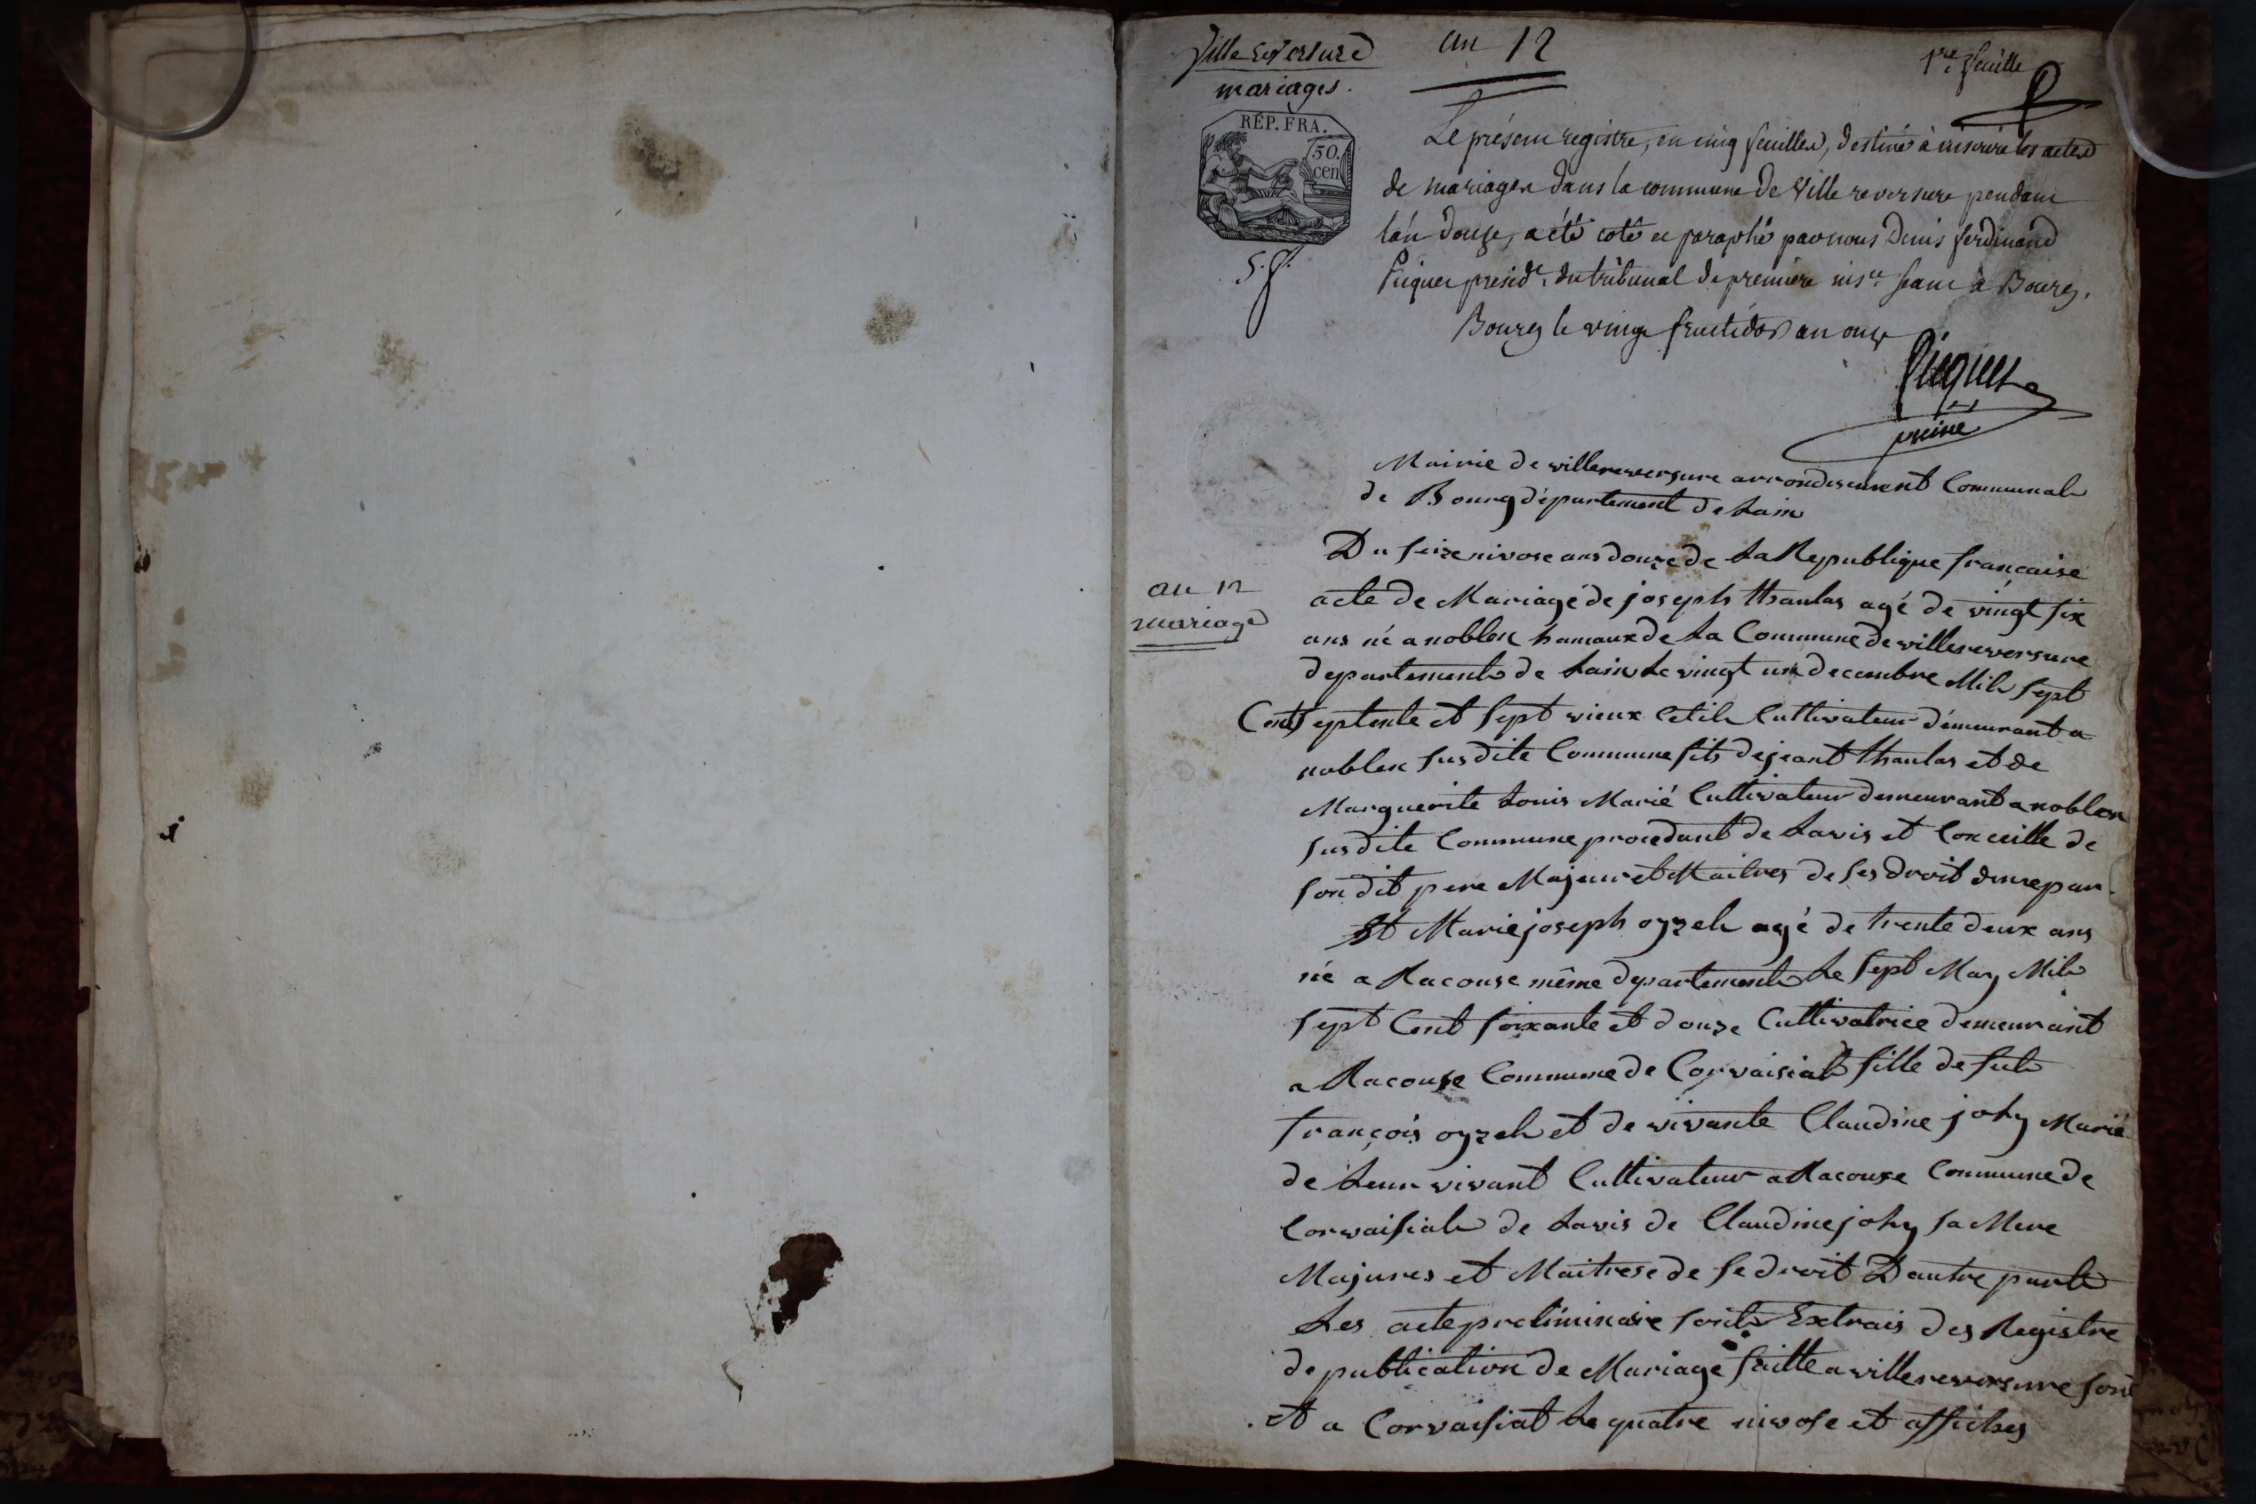 Villereversure
mariages.
an 12
1re feuille
RÉP. FRA.
50.
cen
Le présent registre, en cinq feuilles, destiné à inscrire les actes
de mariages dans la commune de Villereversure pendant
l'an douze, a été coté et paraphé par nous Denis ferdinand
Picquet présidt. du tribunal de première insce. séant à Bourg.
Bourg le vingt fructidor an onze
Picquet
Mairie de villereversure arrondisement Communal
de Bourg département de Lain
an 12
mariage
Du seize nivose ans douze de La Republique française
acte de Mariage de joseph thaulas agé de vingt six
ans né a noblen hamaux de La Commune de villereversure
departement de Lain Le vingt un decembre Mil sept
Cent Septente et sept vieux Cetil Cultivateur demeurant a
noblen susdite Commune fils de jeant thaulas et de
Marguerite Louis Marié Cultivateur demeurant a noblen
susdite Commune procedant de Lavis et Conceille de
son dit pere Majeur et Maitres de ses droit dunepar
Et Marie joseph oyzel agé de trente deux ans
né a Racouse même departement Le sept May Mil
sept Cent soixante et douze Cultivatrice demeurant
a Racouse Commune de Corvaisiat fille de fut
françois oyzel et de vivante Claudine joly Marié
de Leur vivant Cultivateur a Racouse Commune de
Corvaisiat de Lavis de Claudine joly sa Mere
Majures et Maitrese de se droit Dautre part
Les acte preliminaire sont Extrais des Registre
de publication de Mariage faitte a villereversure
et a Corvaisiat Le quatre nivose et affiches